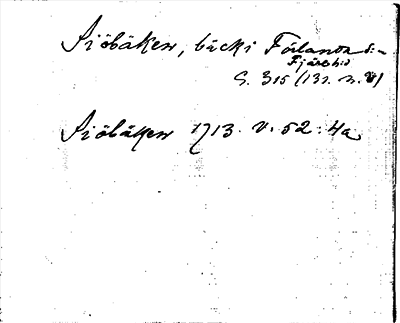 Siöbäken, bäck i Förlanda s:n
Fjäre hd
S. 315 (132. n. 8)
Siöbäken 1713. V. 52: 4a